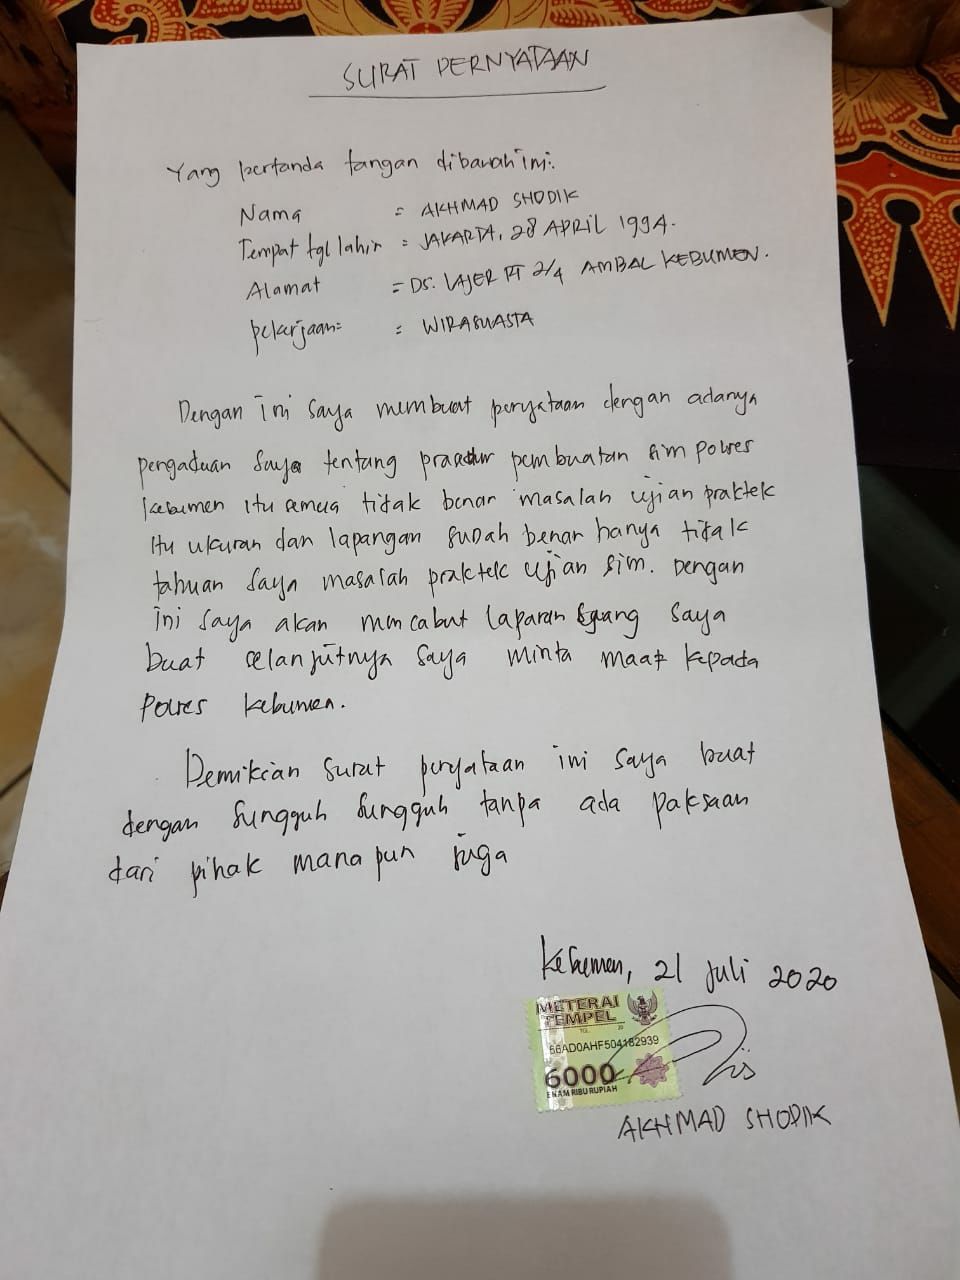 SURAT PERNYATAAN
Yang bertanda tangan dibawah ini:
Nama = AKHMAD SHODIK
Tempat tgl lahir = JAKARTA, 28 APRIL 1994.
Alamat = DS. LAJER RT 2/4 AMBAL KEBUMEN.
pekerjaan= = WIRASUASTA
Dengan ini saya membuat peryataan dengan adanya
pengaduan saya tentang pembuatan sim polres
kebumen itu semua tidak benar masalah ujian praktek
itu ukuran dan lapangan sudah benar hanya tidak
tahuan saya masalah praktek ujian sim. Dengan
ini saya akan mencabut laparan yang saya
buat selanjutnya saya minta maaf kepada
Polres kebumen.
Demikian surat peryataan ini saya buat
dengan sungguh sungguh tanpa ada paksaan
dari pihak mana pun juga
Kebumen, 21 juli 2020
METERAI
TEMPEL
TGL. 20
66AD0AHF504182939
6000
ENAM RIBU RUPIAH
AKHMAD SHODIK